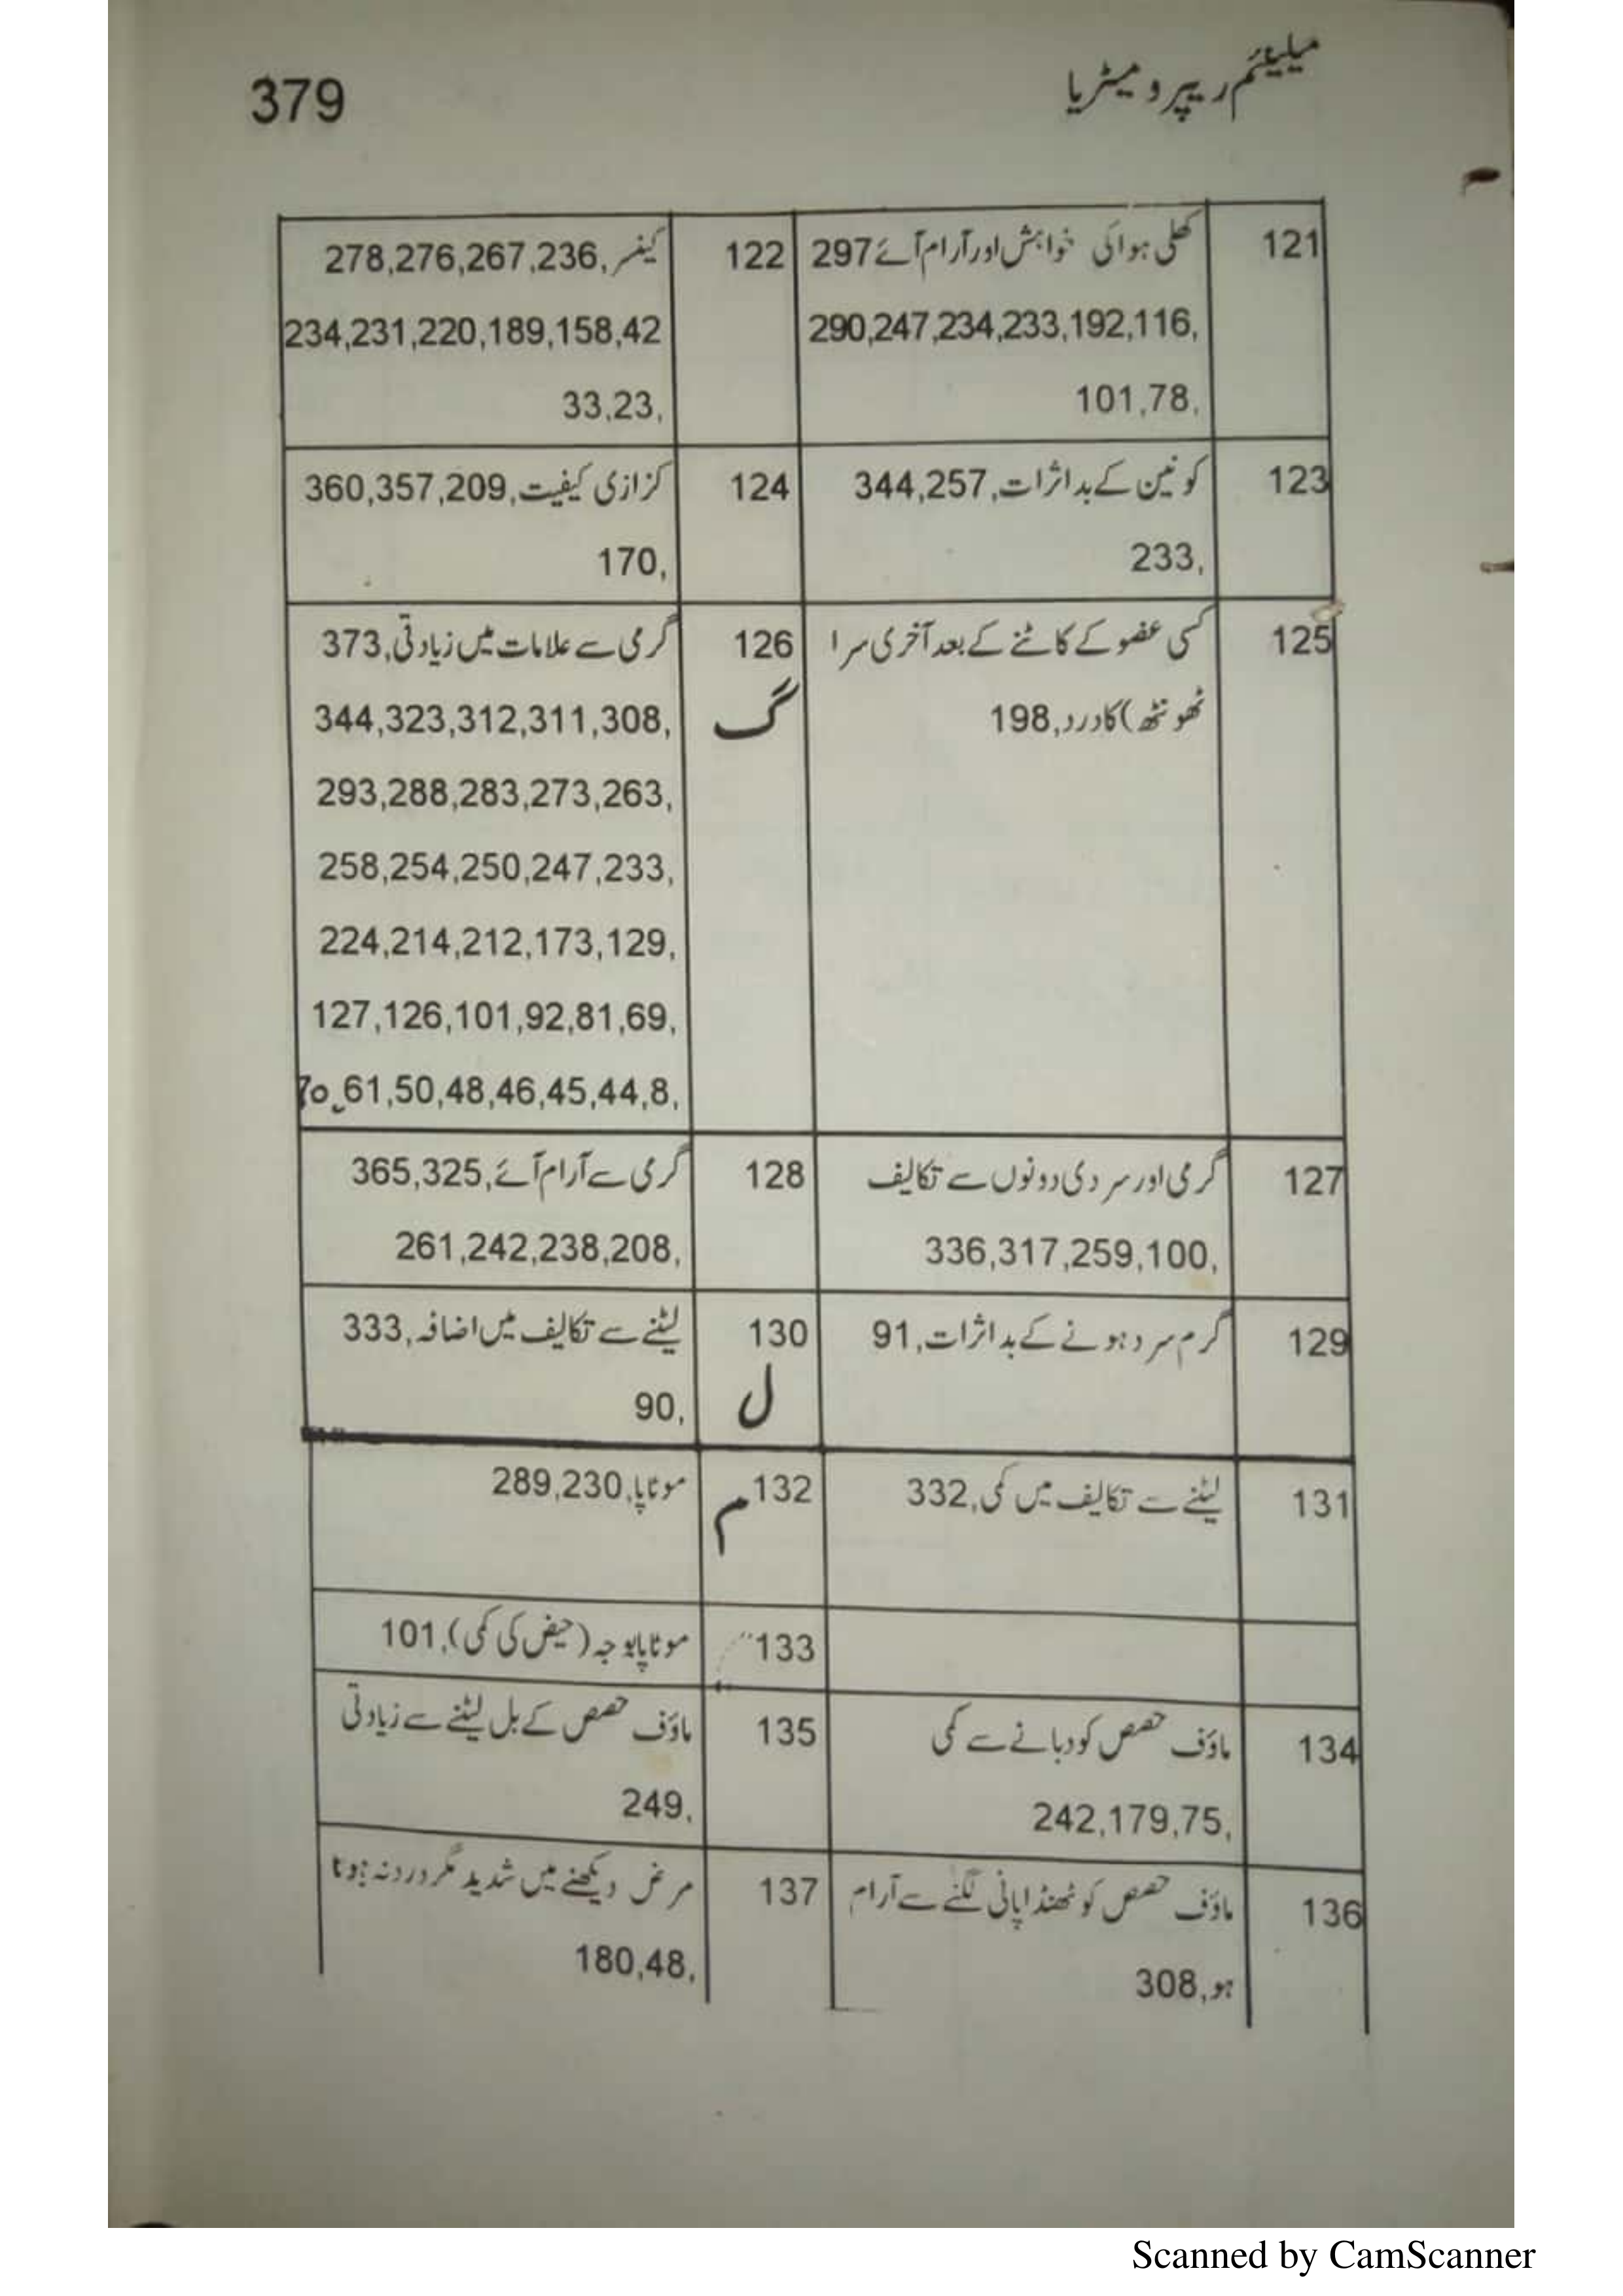 میلینیئم ریپر و میٹریا
379
121
کھلی ہوا کی خواہش اور آرام آئے 297
290,247,234,233,192,116,
101,78,
122
کینسر ,278,276,267,236
234,231,220,189,158,42
33,23,
123
کونین کے بد اثرات ,344,257
233,
124
کزازی کیفیت ,360,357,209
170,
125
کسی عضو کے کاٹنے کے بعد آخری سرا
ٹھونٹھ) کا درد ,198
126
گ
گرمی سے علامات میں زیادتی ,373
344,323,312,311,308,
293,288,283,273,263,
258,254,250,247,233,
224,214,212,173,129,
127,126,101,92,81,69,
70,61,50,48,46,45,44,8,
127
گرمی اور سردی دونوں سے تکالیف
336,317,259,100,
128
گرمی سے آرام آئے ,365,325
261,242,238,208,
129
گرم سرد ہونے کے بد اثرات ,91
130
ل
لیٹنے سے تکالیف میں اضافہ ,333
90,
131
لیٹنے سے تکالیف میں کمی ,332
132
م
موٹاپا ,289,230
133
موٹاپا بوجہ (حیض کی کمی) ,101
134
ماؤف حصص کو دبانے سے کمی
242,179,75,
135
ماؤف حصص کے بل لیٹنے سے زیادتی
249,
136
ماؤف حصص کو ٹھنڈا پانی لگنے سے آرام
ہو ,308
137
مرض دیکھنے میں شدید مگر درد نہ ہوتا
180,48,
Scanned by CamScanner